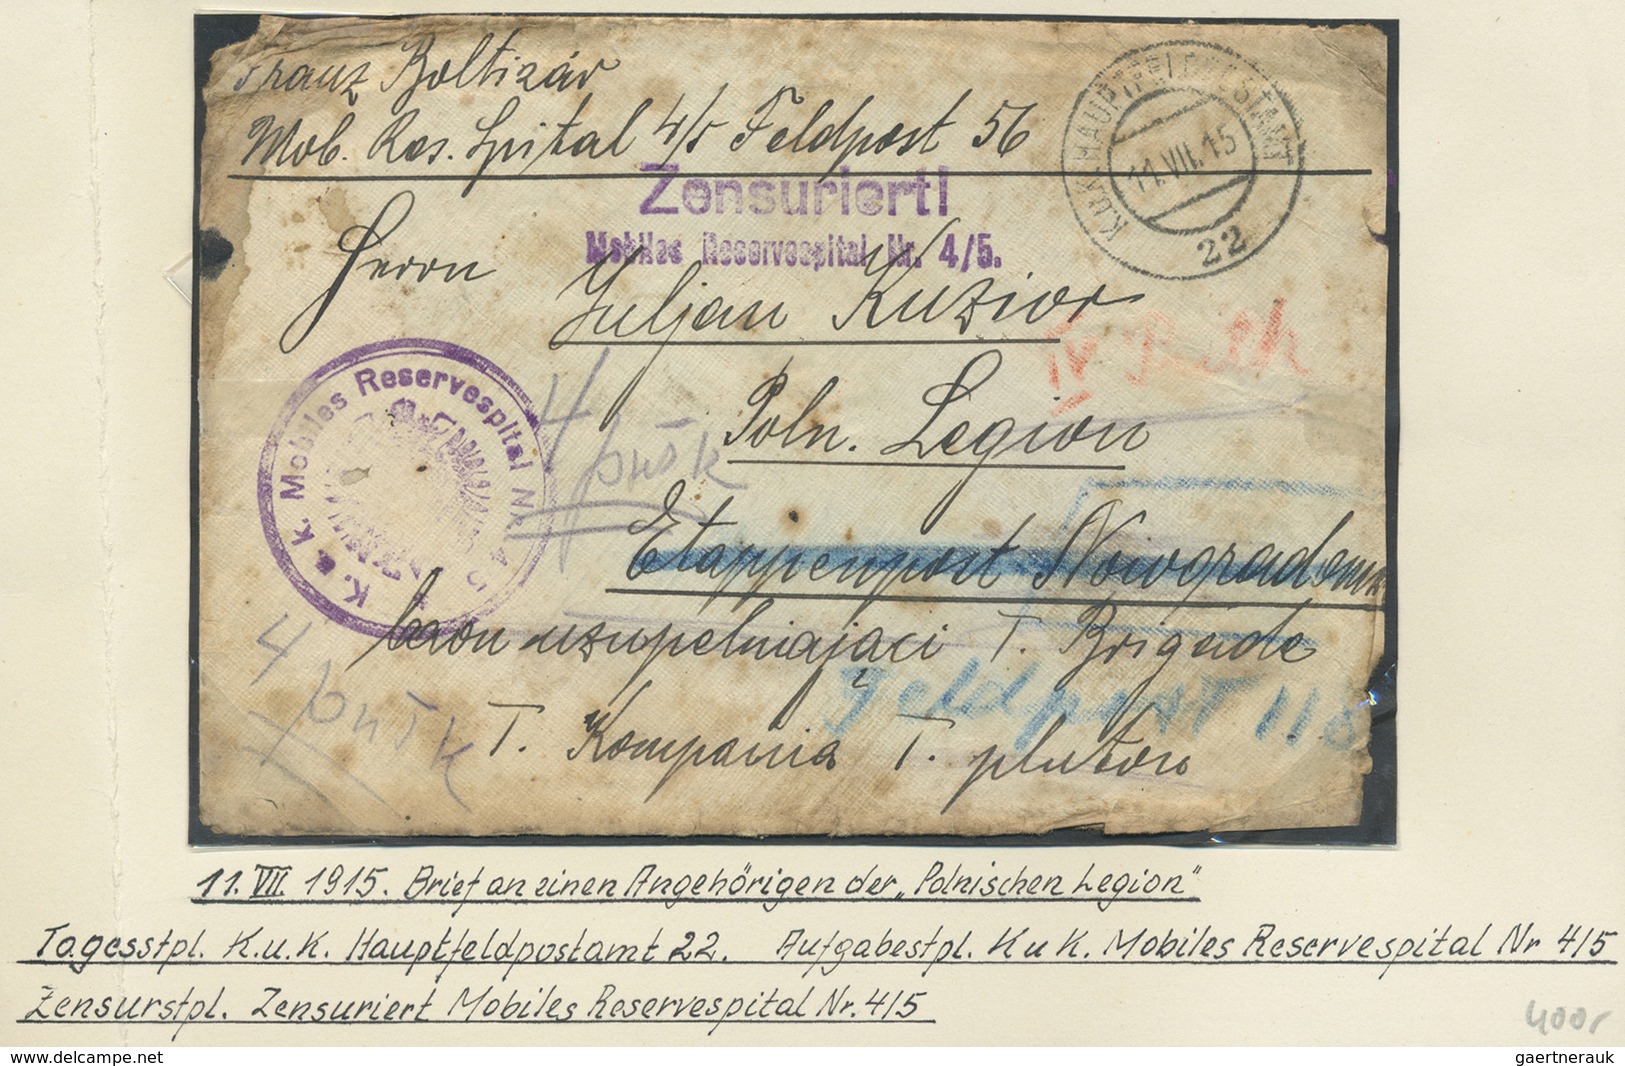 Franz Boltizár
Mob. Res. Spital 4/5 Feldpost 56
K.u.K. HAUPTFELDPOSTAMT
11.VII.15
22
Zensuriert!
Mobiles Reservespital Nr. 4/5.
Herrn
Juljan Kuzior
Poln. Legion
K. u. k. Mobiles Reservespital Nr. 4/5
4 pułk
Etappenpost Nowogradomsk
baon uzupelniającі I. Brigade
Feldpost 118
4 pułk
I. Kompania I. pluton
11. VII. 1915. Brief an einen Angehörigen der „Polnischen Legion"
Tagesstpl. K.u.K. Hauptfeldpostamt 22. Aufgabestpl. K u K. Mobiles Reservespital Nr 4/5
Zensurstpl. Zensuriert Mobiles Reservespital Nr. 4/5
400,-
www.delcampe.net
gaertnerauk